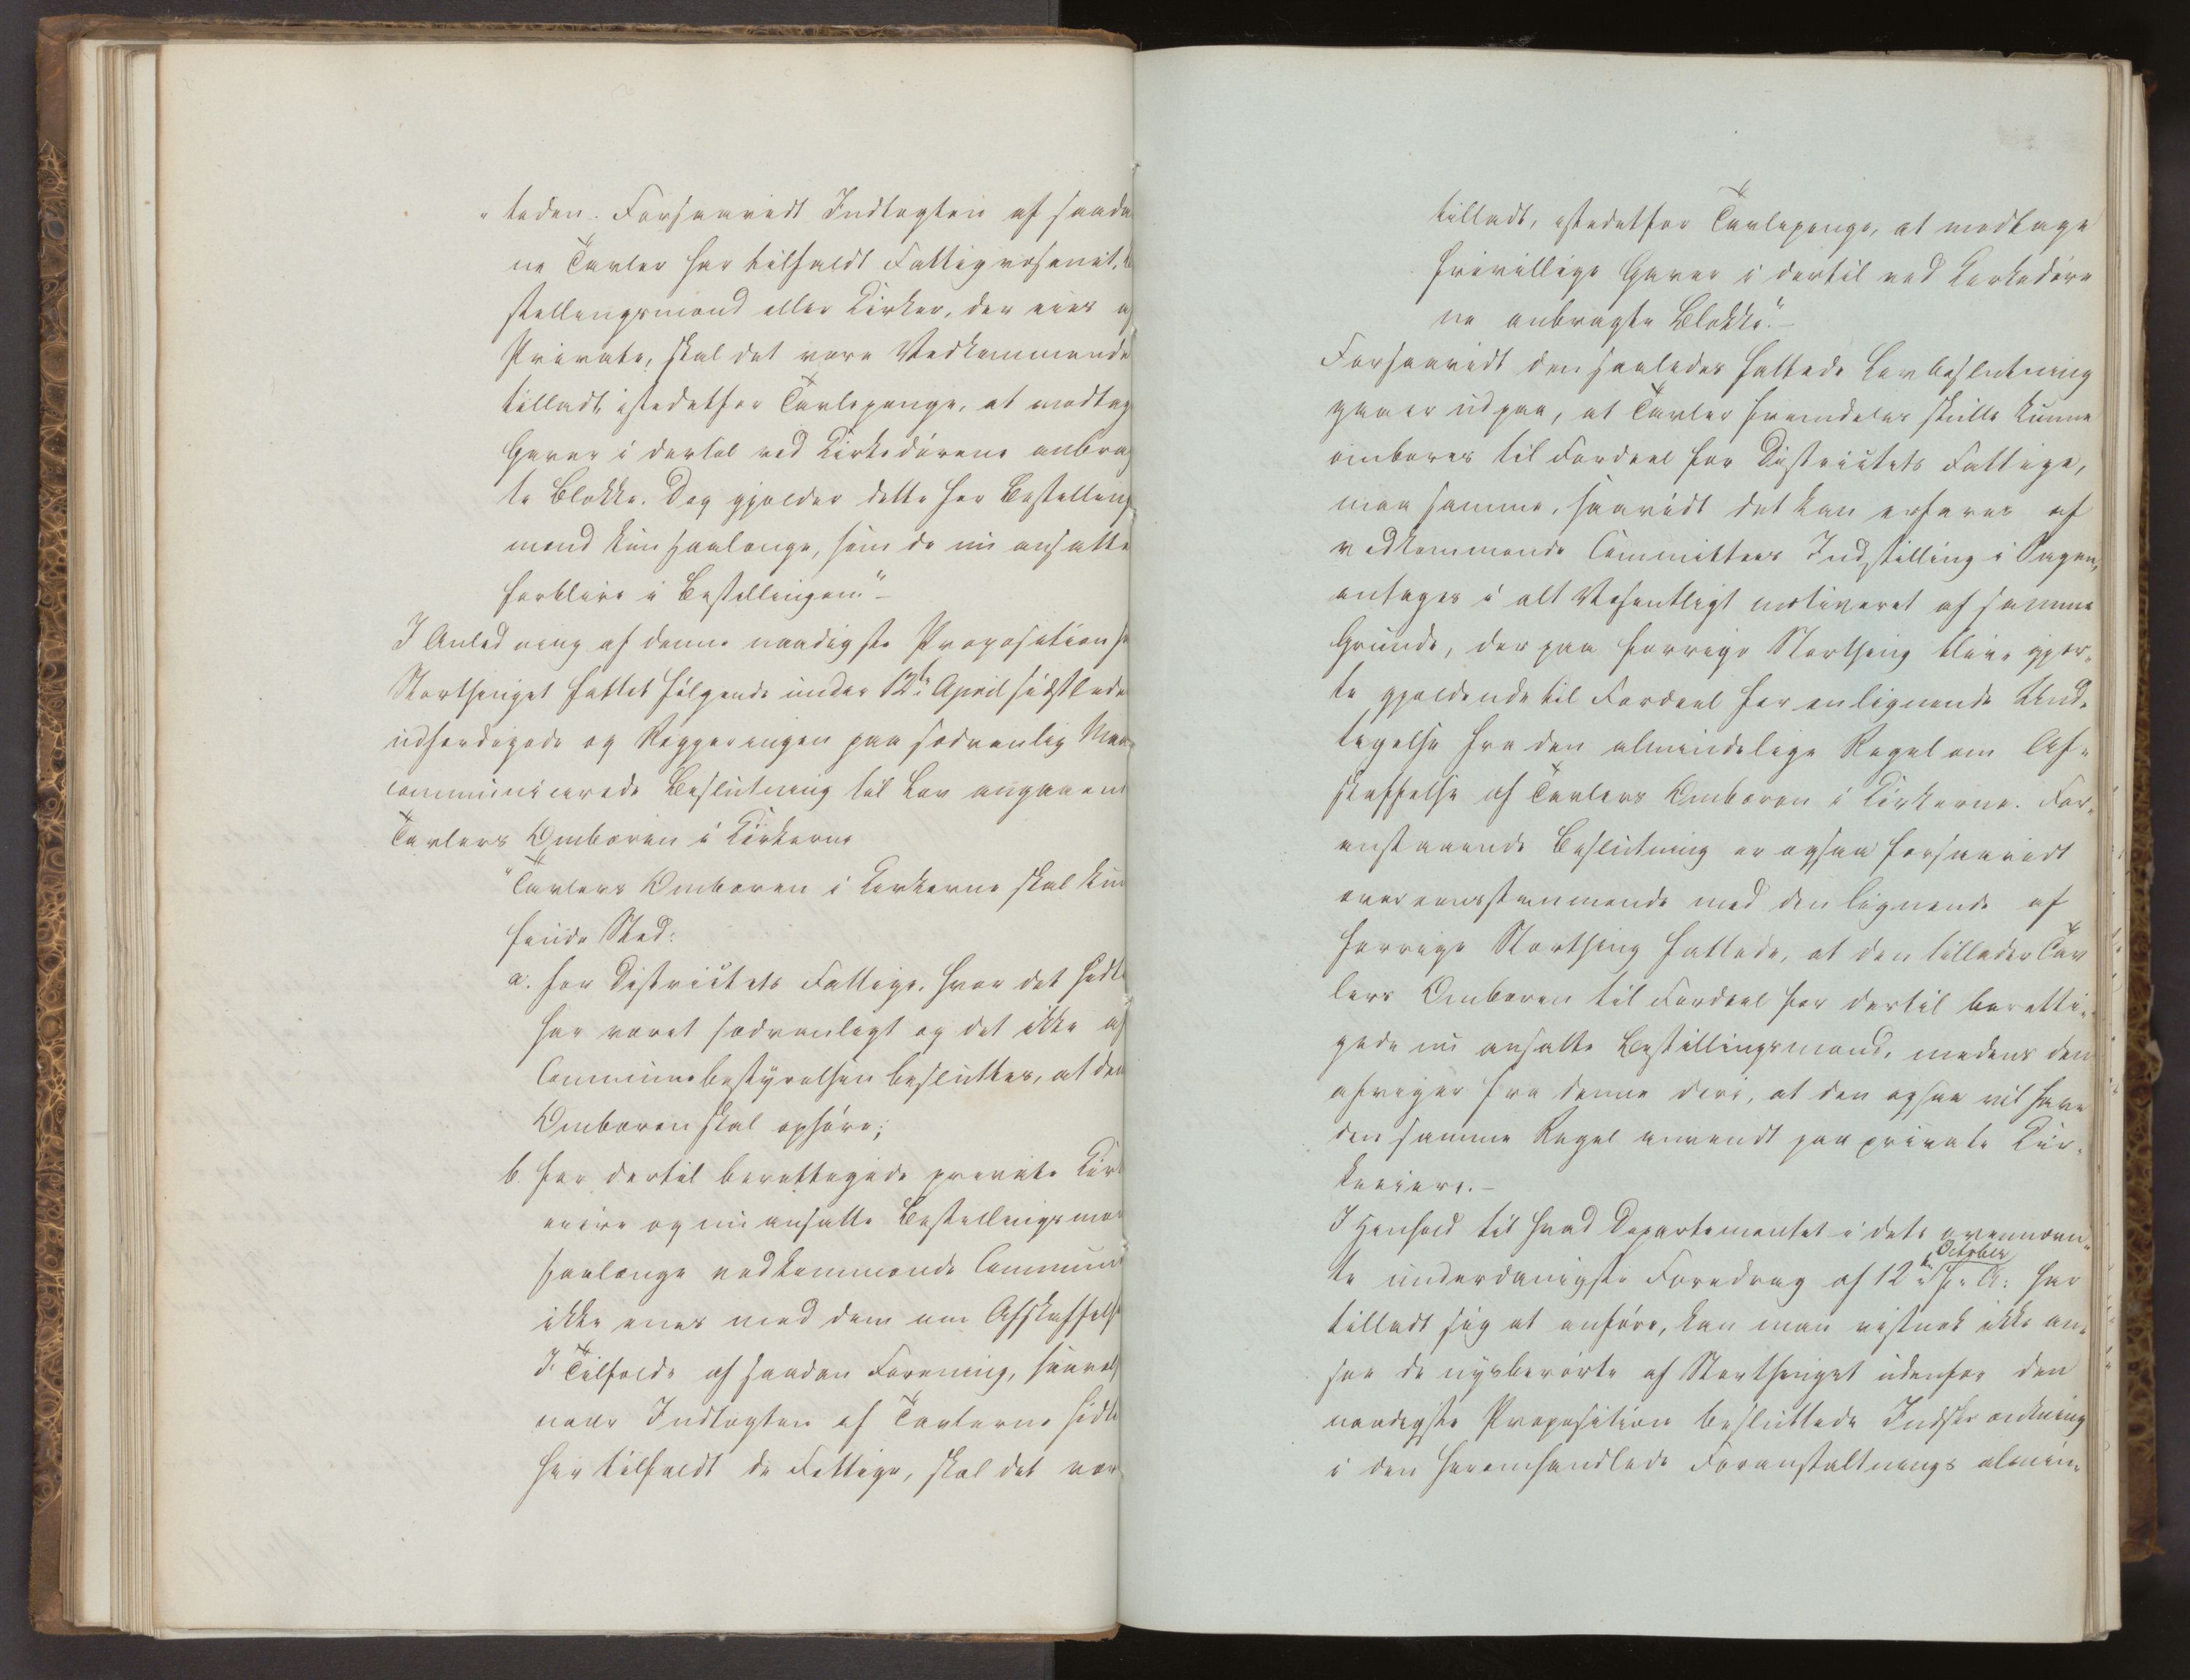 "taden. Forsaavidt Indtægten af saada
ne Tavler har tilfaldt Fattigvæsenet, Be
stillingsmænd eller Kirker, der eies af
Private, skal det være Vedkommende
tilladt, istedetfor Tavlepenge, at modtage
Gaver i dertil ved Kirkedørene anbrag
te Blokke. Dog gjælder dette for Bestillings
mænd kun saalænge, som de nu ansatte
forblive i Bestillingen."-
I Anledning af denne naadigste Proposition har
Storthinget fattet følgende under 12te April sidstleden
udfærdigede og Reggjeringen paa sædvanlig Maade
communicerede Beslutning til Lov angaaende
Tavlers Ombæren i Kirkerne
"Tavlers Ombæren i Kirkerne skal kun
finde Sted:
a. for Districtets Fattige, hvor det hidtil
har været sædvanligt og det ikke af
Communebestyrelsen besluttes, at den
Ombæren skal ophøre;
b. for dertil berettigede private Kirke
eiere og nu ansatte Bestillingsmænd
saalænge vedkommende Commune
ikke enes med dem om Afskaffelse
I Tilfælde af saadan Forening, saavelsom
naar Indtægten af Tavlerne hidtil
har tilfaldt de Fattige, skal det være
tilladt, istedetfor Tavlepenge, at modtage
frivillige Gaver i dertil ved Kirkedøre
ne anbragte Blokke."-
Forsaavidt den saaledes fattede Lovbeslutning
gaaer ud paa, at Tavler fremdeles skulle kunne
ombæres til Fordeel for Districtets Fattige,
maa samme, saavidt det kan erfares af
vedkommende Committees Indstilling i Sagen,
antages i alt Væsentligt motiveret af samme
Grunde, der paa forrige Storthing bleve gjor-
te gjældende til Fordeel for en lignende Und-
tagelse fra den almindelige Regel om Af-
skaffelse af Tavlers Ombæren i Kirkerne. For-
anstaaende Beslutning er ogsaa forsaavidt
overeensstemmende med den lignende af
forrige Storthing fattede, at den tillader Tav
lers Ombæren til Fordeel for dertil beretti-
gede nu ansatte Bestillingsmænd, medens den
afviger fra denne deri, at den ogsaa vil have
den samme Regel anvendt paa private Kir-
keeiere.-
I Henhold til hvad Departementet i dets ovennævn-
te underdanigste Foredrag af 12te October f. A. har
tilladt sig at anføre, kan man vistnok ikke an-
see de nysberørte af Storthinget udenfor den
naadigste Proposition besluttede Indskrænkning
i den heromhandlede Foranstaltnings almin-